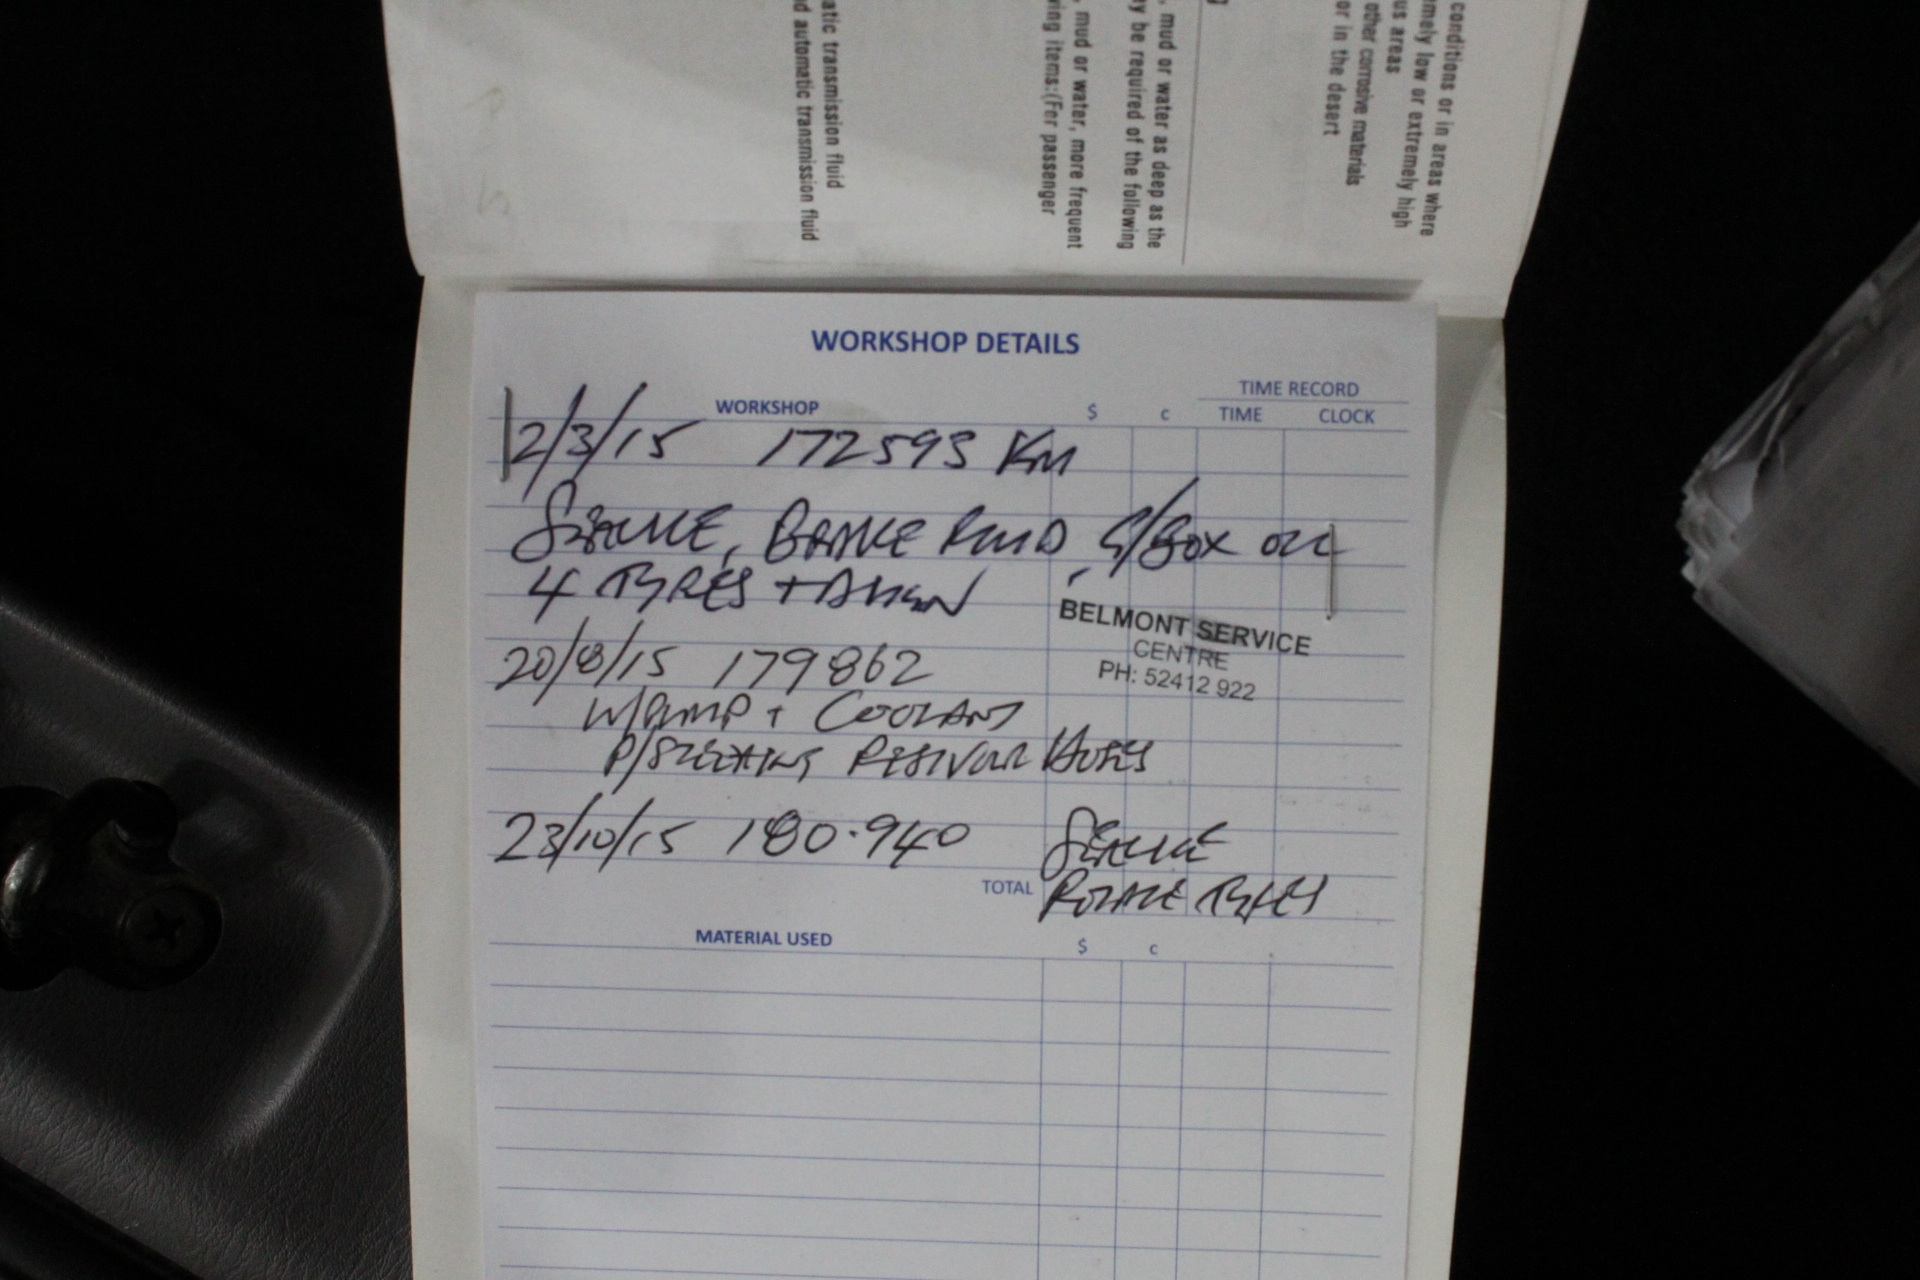 conditions or in areas where
mely low or extremely high
us areas
other corrosive materials
or in the desert
, mud or water as deep as the
y be required of the following
, mud or water, more frequent
ing items:(For passenger
atic transmission fluid
d automatic transmission fluid
WORKSHOP DETAILS
TIME RECORD
WORKSHOP $ c TIME CLOCK
2/3/15 172593 Km
SERVICE, BRAKE FLUID, G/BOX OIL
4 TYRES + ALIGN
BELMONT SERVICE
CENTRE
PH: 52412 922
20/8/15 179862
W/PUMP + COOLANT
P/STEERING RESIVOUR HOSES
23/10/15 180.940 SERVICE
TOTAL ROTATE TYRES
MATERIAL USED $ c